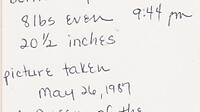 8lbs even 9:44 pm
20 1/2 inches
picture taken
May 26, 1987
of the